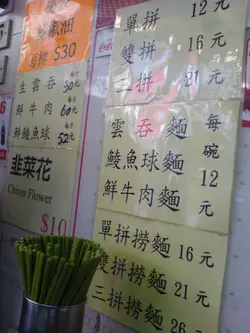 獻油
$30
生雲吞 每斤 30元
鮮牛肉 每斤 60元
鮮鯪魚球 每斤 32元
韭菜花
Chives Flower
$10
單拼 12元
雙拼 16元
三拼 21元
雲吞麵 每
鯪魚球麵 碗
鮮牛肉麵 12元
單拼撈麵 16元
雙拼撈麵 21元
三拼撈麵 26元